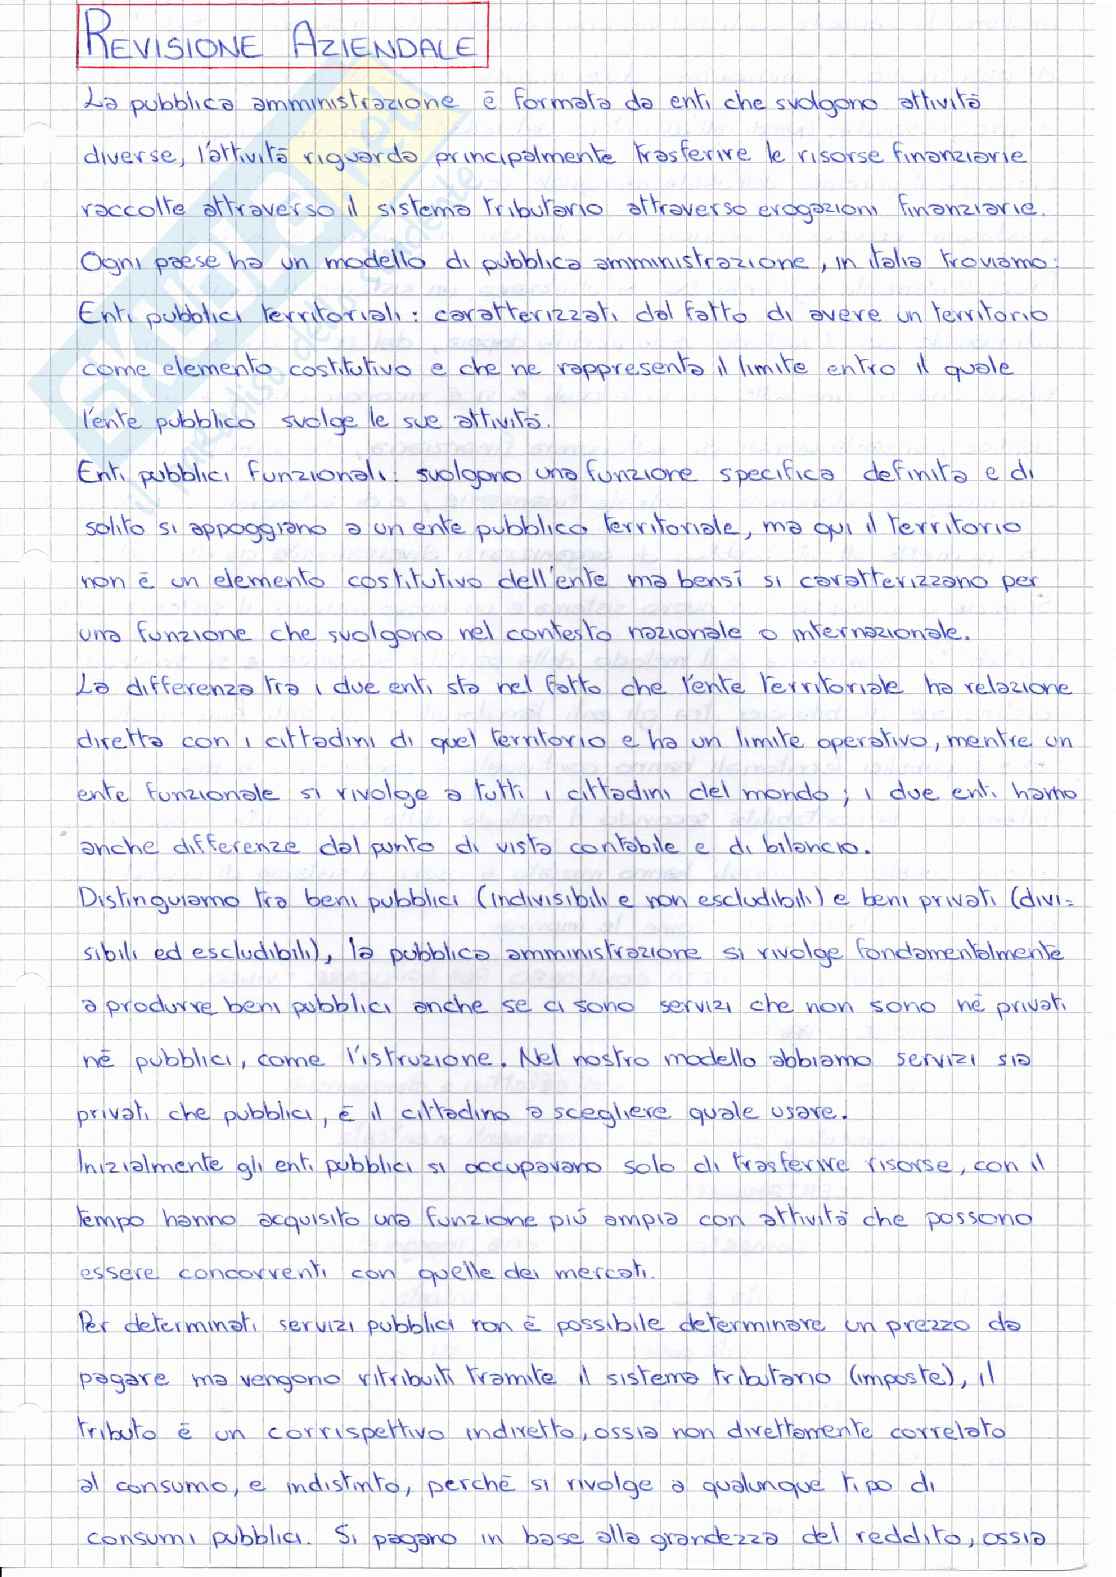 REVISIONE AZIENDALE
La pubblica amministrazione è formata da enti che svolgono attività
diverse, l'attività riguarda principalmente trasferire le risorse finanziarie
raccolte attraverso il sistema tributario attraverso erogazioni finanziarie.
Ogni paese ha un modello di pubblica amministrazione, in italia troviamo:
Enti pubblici territoriali: caratterizzati dal fatto di avere un territorio
come elemento costitutivo e che ne rappresenta il limite entro il quale
l'ente pubblico svolge le sue attività.
Enti pubblici funzionali: svolgono una funzione specifica definita e di
solito si appoggiano a un ente pubblico territoriale, ma qui il territorio
non è un elemento costitutivo dell'ente ma bensì si caratterizzano per
una funzione che svolgono nel contesto nazionale o internazionale.
La differenza tra i due enti sta nel fatto che l'ente territoriale ha relazione
diretta con i cittadini di quel territorio e ha un limite operativo, mentre un
ente funzionale si rivolge a tutti i cittadini del mondo; i due enti hanno
anche differenze dal punto di vista contabile e di bilancio.
Distinguiamo tra beni pubblici (indivisibili e non escludibili) e beni privati (divi=
sibili ed escludibili), la pubblica amministrazione si rivolge fondamentalmente
a produrre beni pubblici anche se ci sono servizi che non sono né privati
né pubblici, come l'istruzione. Nel nostro modello abbiamo servizi sia
privati che pubblici, è il cittadino a scegliere quale usare.
Inizialmente gli enti pubblici si occupavano solo di trasferire risorse, con il
tempo hanno acquisito una funzione più ampia con attività che possono
essere concorrenti con quelle dei mercati.
Per determinati servizi pubblici non è possibile determinare un prezzo da
pagare ma vengono ritribuiti tramite il sistema tributario (imposte), il
tributo è un corrispettivo indiretto, ossia non direttamente correlato
al consumo, e indistinto, perché si rivolge a qualunque tipo di
consumi pubblici. Si pagano in base alla grandezza del reddito, ossia